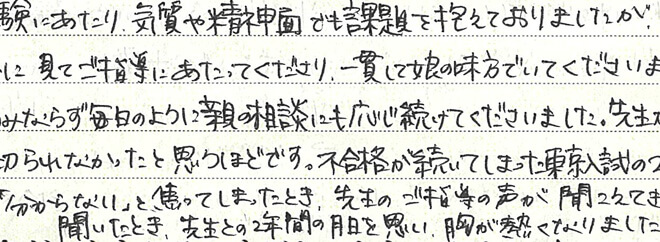 験にあたり、気質や精神面でも課題を抱えておりましたが、
に見てご指導にあたってくださり、一貫して娘の味方でいてくださいま
みならず毎日のように親の相談にも応じ続けてくださいました。先生
切られなかったと思うほどです。不合格が続いてしまった東京入試の
分からない」と焦ってしまったとき、先生のご指導の声が聞こえてき
聞いたとき、先生との2年間の月日を思い、胸が熱くなりました